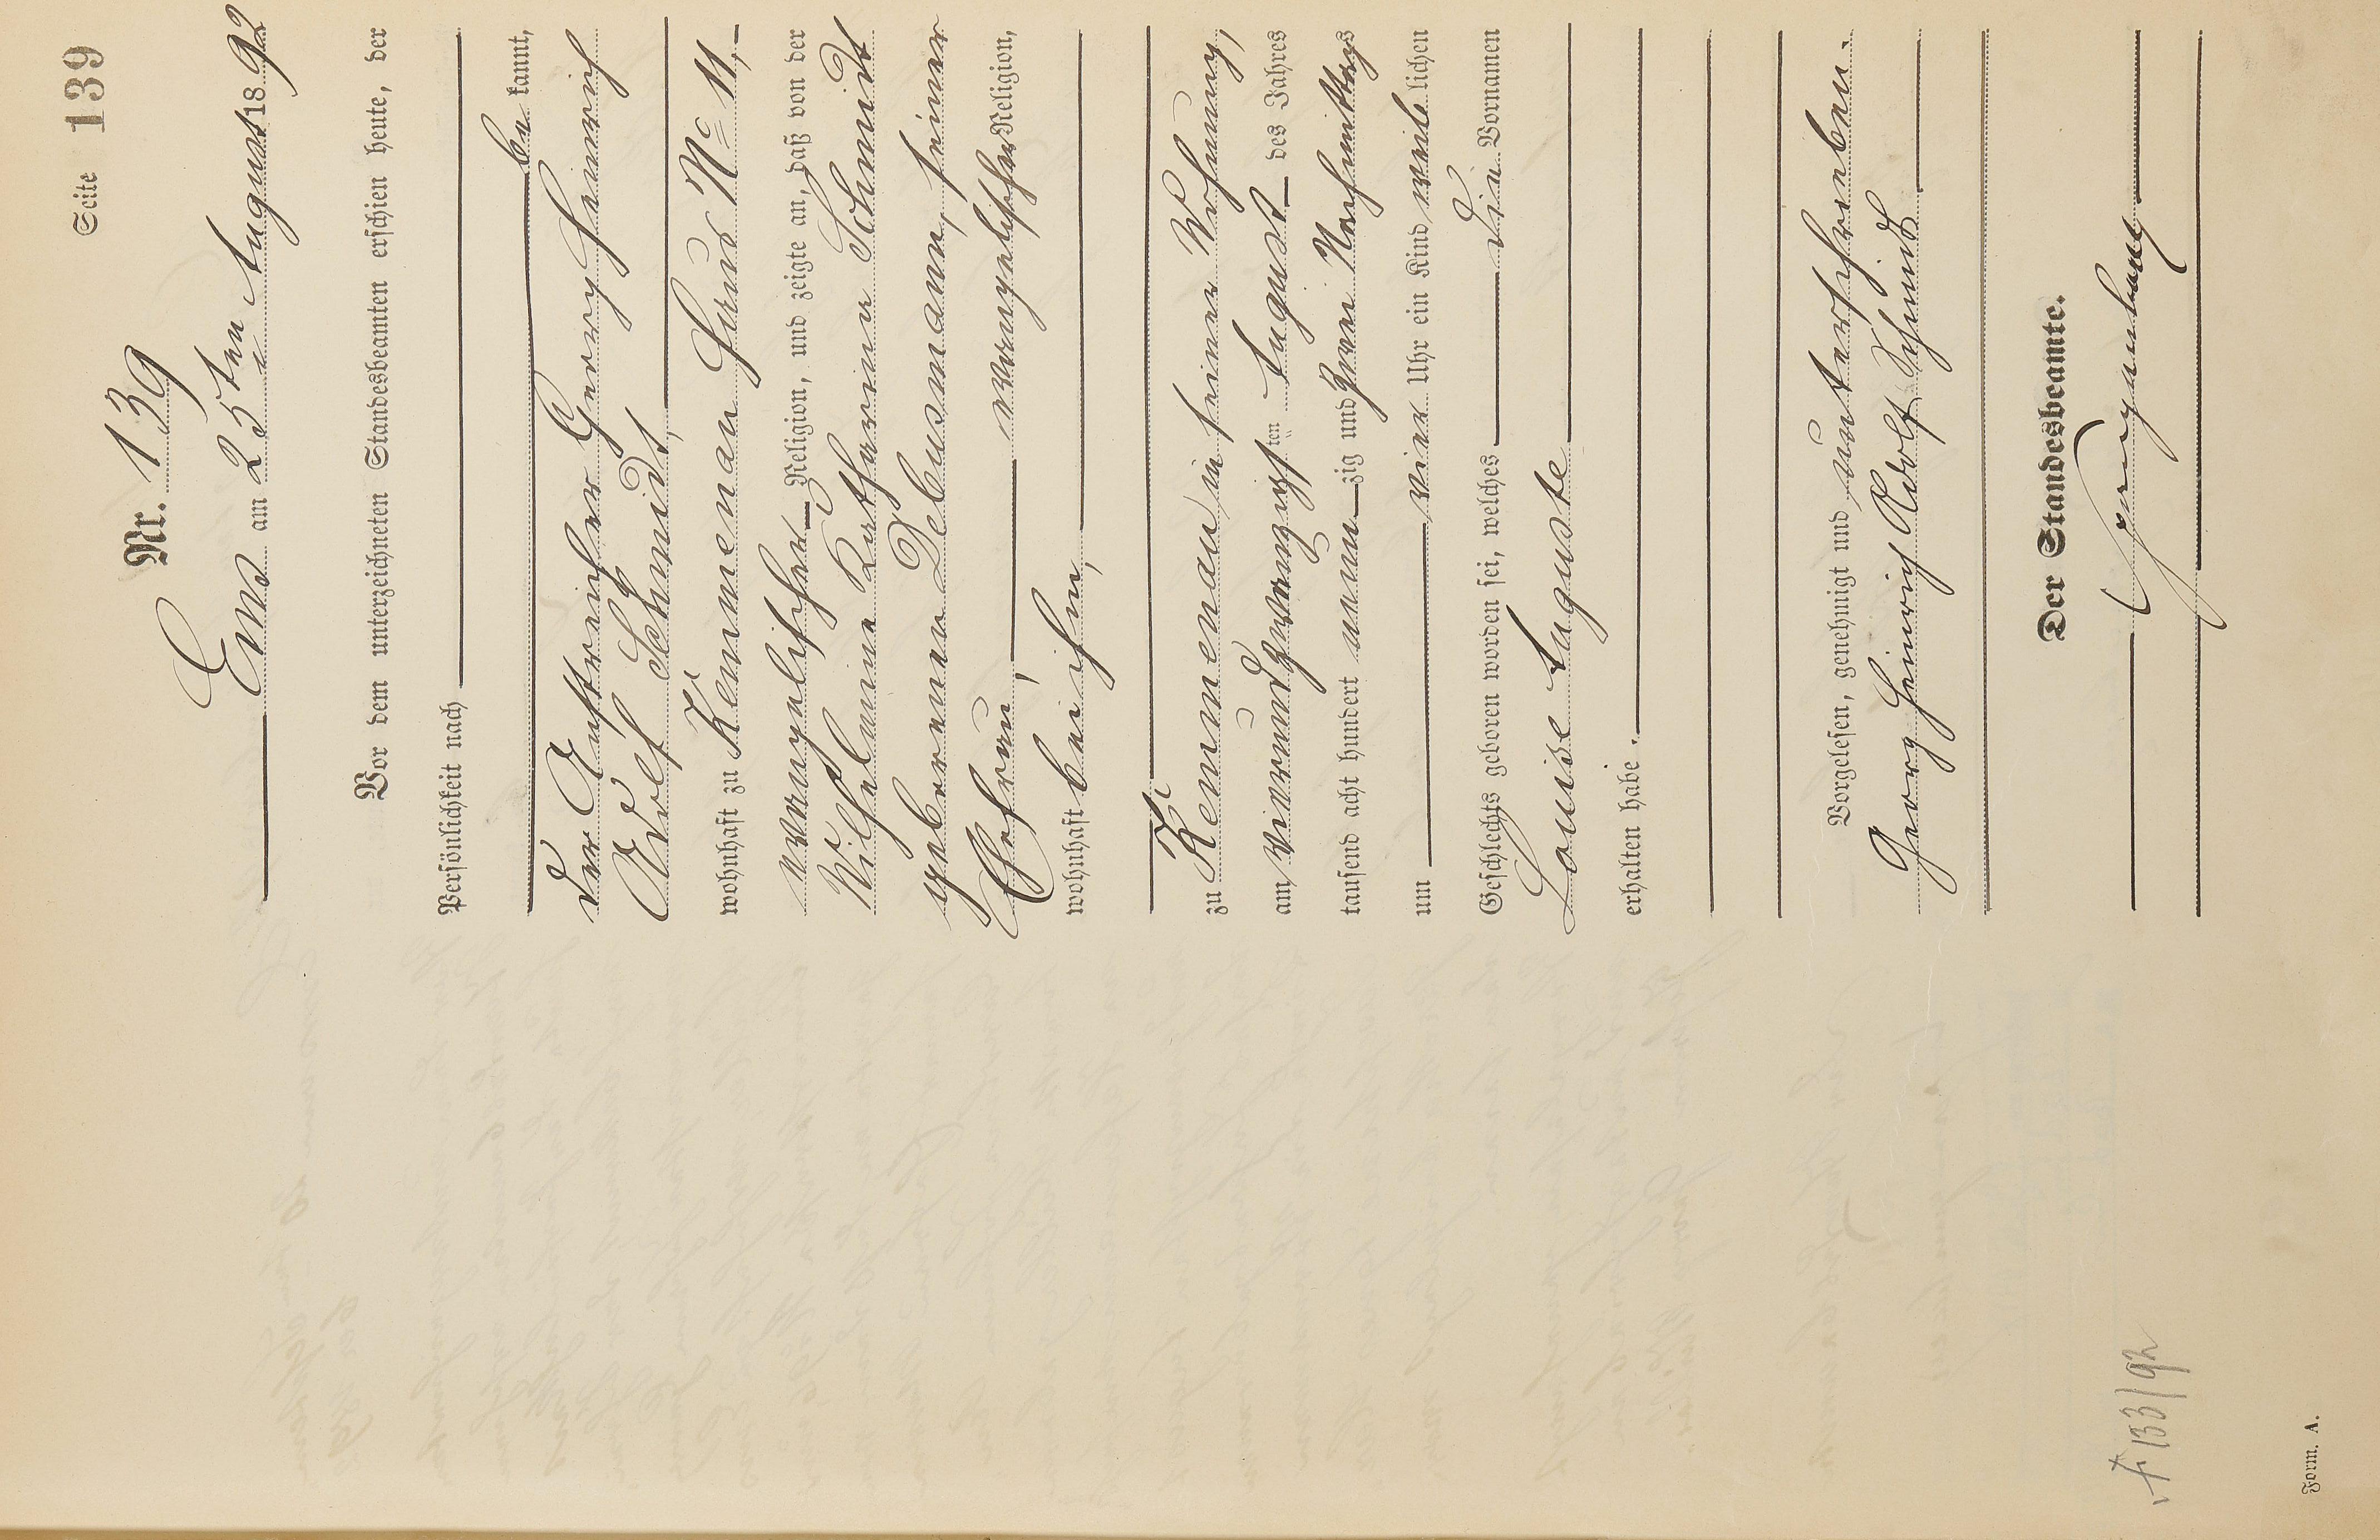 Seite 139
Nr. 139
Ems am 25ten August 1892
Vor dem unterzeichneten Standesbeamten erschien heute, der
Persönlichkeit nach
be kannt,
der Anstreicher Georg Heinrich
Adolf Schmidt,
wohnhaft zu Kemmenau Haus No 11,
evangelischer Religion, und zeigte an, daß von der
Wilhelmine Katharine Schmidt
geborenen Debusmann, seiner
Ehefrau, evangelischer Religion,
wohnhaft bei ihm,
zu Kemmenau in seiner Wohnung,
am vierundzwanzigsten August des Jahres
tausend acht hundert neun zig und zwei Nachmittags
um vier Uhr ein Kind weib lichen
Geschlechts geboren worden sei, welches die Vornamen
Louise Auguste
erhalten habe.
Vorgelesen, genehmigt und unterschrieben.
Georg Heinrich Adolf Schmidt
Der Standesbeamte.
† 133/92
Form. A.